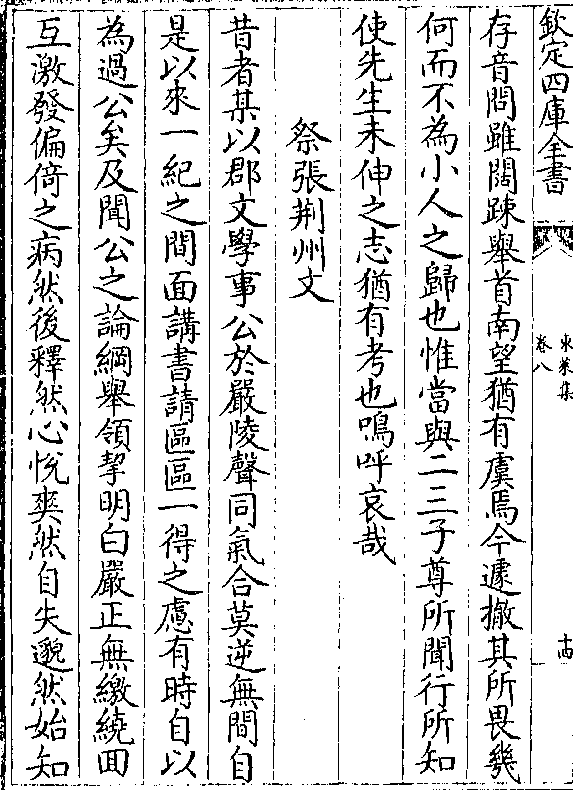 欽定四庫全書
東萊集
卷八
十四
存音問雖闊踈舉首南望猶有虞焉今遽撤其所畏幾
何而不為小人之歸也惟當與二三子尊所聞行所知
使先生未伸之志猶有考也嗚呼哀哉
祭張荆州文
昔者某以郡文學事公於嚴陵聲同氣合莫逆無間自
是以來一紀之間面講書請區區一得之慮有時自以
為過公矣及聞公之論綱舉領挈明白嚴正無繳繞回
互激發偏倚之病然後釋然心悅爽然自失邈然始知